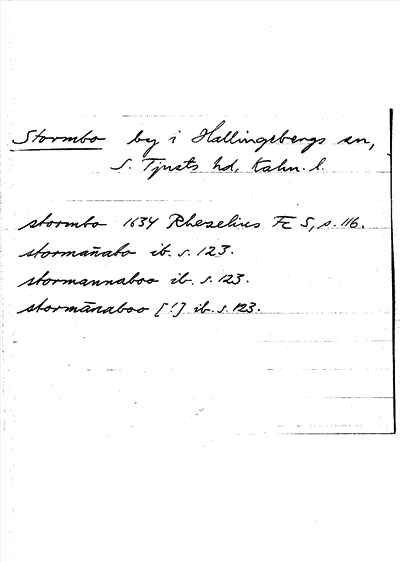 Stormbo by i Hallingebergs sn,
S. Tjusts hd, Kalm. l.
stormbo 1634 Rhezelius Fc 5, s. 116.
storman̄abo ib. s. 123.
stormannaboo ib. s. 123.
stormānaboo [!] ib. s. 123.